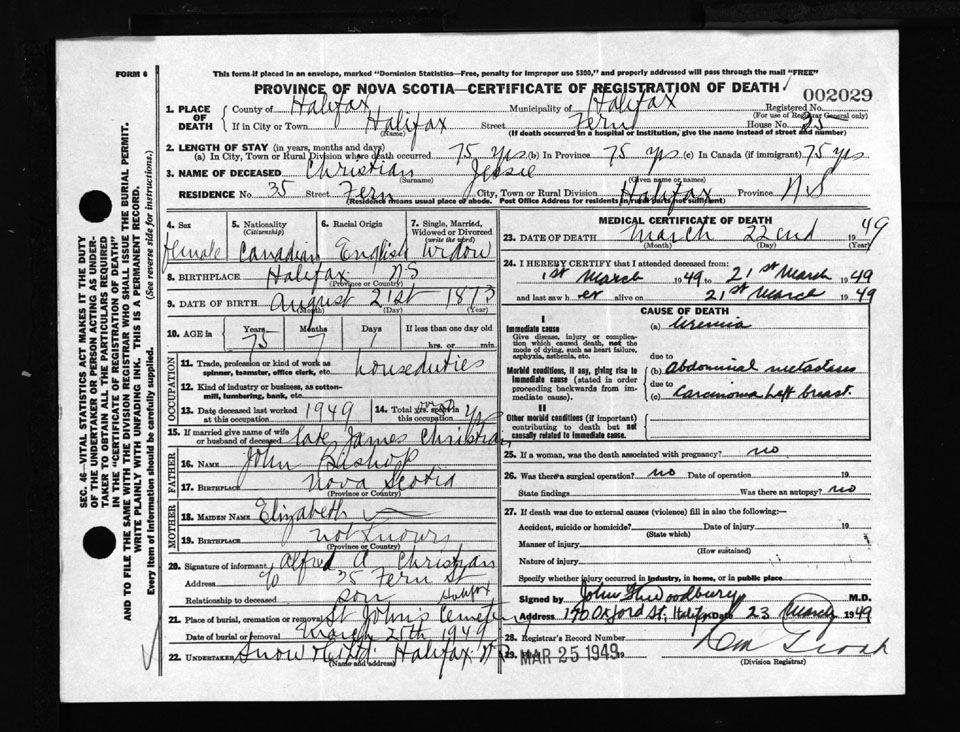 FORM 6
This form if placed in an envelope, marked "Dominion Statistics—Free, penalty for improper use $300," and properly addressed will pass through the mail "FREE"
PROVINCE OF NOVA SCOTIA—CERTIFICATE OF REGISTRATION OF DEATH
002029
1. PLACE OF DEATH County of Halifax Municipality of Halifax Registered No.
(For use of Registrar General only)
If in City or Town Halifax Street Fern House No. 35
(Name) (If death occurred in a hospital or institution, give the name instead of street and number)
2. LENGTH OF STAY (in years, months and days)
(a) In City, Town or Rural Division where death occurred 75 yrs (b) In Province 75 yrs (c) In Canada (if immigrant) 75 yrs
3. NAME OF DECEASED Christian Jessie
(Surname) (Given name or names)
RESIDENCE No. 35 Street Fern City, Town or Rural Division Halifax Province N.S
(Residence means usual place of abode. Post Office Address for residents in rural parts not sufficient)
4. Sex 5. Nationality (Citizenship) 6. Racial Origin 7. Single, Married, Widowed or Divorced (write the word)
female Canadian English Widow
8. BIRTHPLACE Halifax NS
(Province or Country)
9. DATE OF BIRTH August 21st 1873
(Month) (Day) (Year)
10. AGE in Years Months Days If less than one day old
75 7 1 hrs. or min.
OCCUPATION
11. Trade, profession or kind of work as spinner, teamster, office clerk, etc. houseduties
12. Kind of industry or business, as cotton-mill, lumbering, bank, etc.
13. Date deceased last worked at this occupation 1949 14. Total yrs. spent in this occupation yrs
15. If married give name of wife or husband of deceased late James Christian
FATHER
16. NAME John Bishop
17. BIRTHPLACE Nova Scotia
(Province or Country)
MOTHER
18. MAIDEN NAME Elizabeth —
19. BIRTHPLACE not known
(Province or Country)
20. Signature of informant Alfred A Christian
Address c/o 35 Fern St
Relationship to deceased son Halifax
21. Place of burial, cremation or removal St John's Cemetery
Date of burial or removal March 25th 1949
22. UNDERTAKER Snow & Co Ltd. Halifax N.S
(Name and address)
MEDICAL CERTIFICATE OF DEATH
23. DATE OF DEATH March 22nd 1949
(Month) (Day) (Year)
24. I HEREBY CERTIFY that I attended deceased from:
1st March 1949 to 21st March 1949
and last saw her alive on 21st March 1949
CAUSE OF DEATH
I
Immediate cause (a) Uremia
Give disease, injury or complication which caused death, not the mode of dying, such as heart failure, asphyxia, asthenia, etc.
due to
Morbid conditions, if any, giving rise to immediate cause (stated in order proceeding backwards from immediate cause).
(b) Abdominal metastases
due to
(c) Carcinoma Left breast.
II
Other morbid conditions (if important) contributing to death but not causally related to immediate cause.
25. If a woman, was the death associated with pregnancy? no
26. Was there a surgical operation? no Date of operation 19
State findings Was there an autopsy? no
27. If death was due to external causes (violence) fill in also the following:—
Accident, suicide or homicide? Date of injury 19
(State which)
Manner of injury
(How sustained)
Nature of injury
Specify whether injury occurred in industry, in home, or in public place
Signed by John F Woodbury M.D.
Address 170 Oxford St, Halifax Date 23 March 1949
28. Registrar's Record Number
29. MAR 25 1949 19
(Division Registrar)
SEC. 46—VITAL STATISTICS ACT MAKES IT THE DUTY
OF THE UNDERTAKER OR PERSON ACTING AS UNDERTAKER TO OBTAIN ALL THE PARTICULARS REQUIRED
IN THE "CERTIFICATE OF REGISTRATION OF DEATH"
AND TO FILE THE SAME WITH THE DIVISION REGISTRAR WHO SHALL ISSUE THE BURIAL PERMIT.
WRITE PLAINLY WITH UNFADING INK. THIS IS A PERMANENT RECORD.
Every item of information should be carefully supplied. (See reverse side for instructions.)